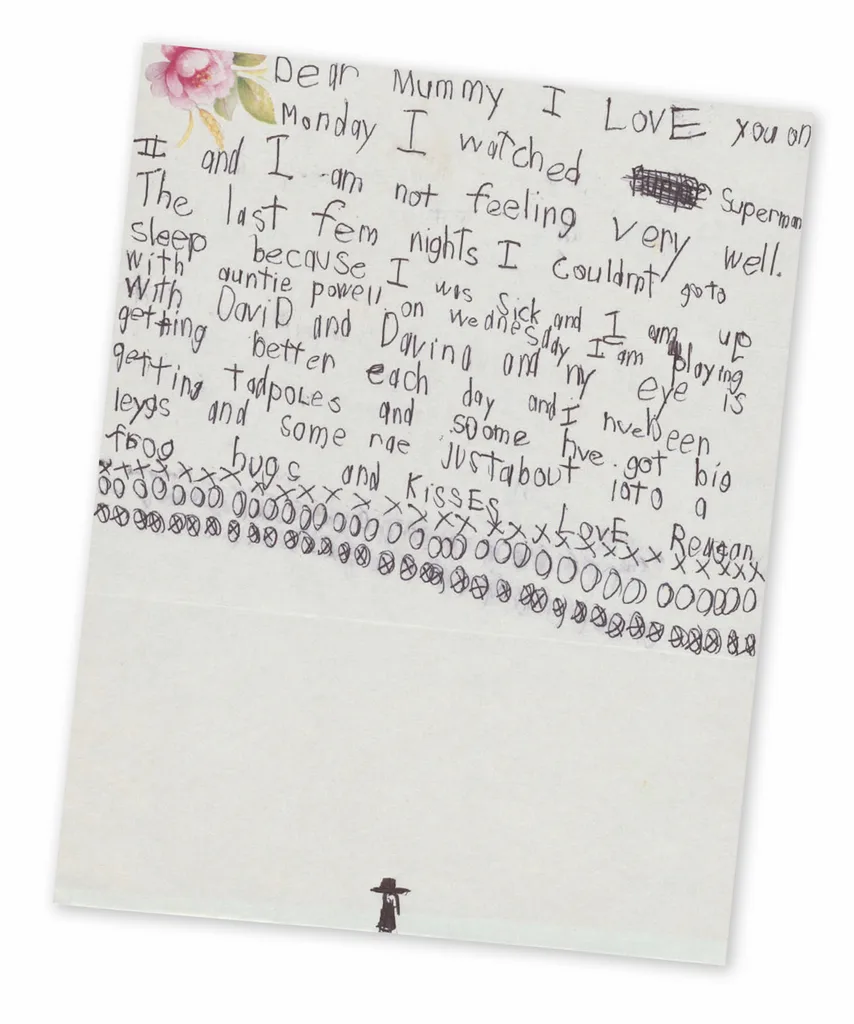 Dear Mummy I LOVE you on
Monday I watched Superman
II and I am not feeling very well.
The last fem nights I couldnt go to
sleep because I was sick and I am up
with auntie powell on wednesday I am playing
With DaviD and Davina and my eye is
getting better each day and I hve been
getting tadpoles and soome hve got big
leygs and some rae just about into a
frog hugs and KissEs LovE Reagan
xxxxxxxxxxxxxxxxxxxxxxxxxxxxx